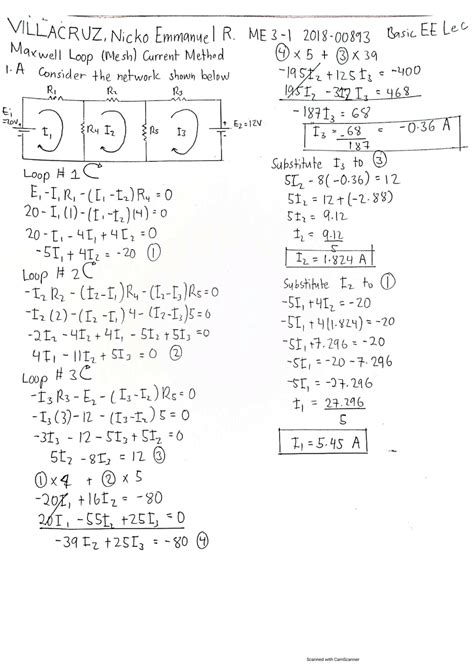 VILLACRUZ, Nicko Emmanuel R. ME 3-1 2018-00893 Basic EE Lec
Maxwell Loop (Mesh) Current Method
1. A Consider the network shown below
R₁ R₂ R₃
E₁
=20V
I₁ R₄ I₂ R₅ I₃ E₂=12V
Loop # 1
E₁ - I₁R₁ - (I₁ - I₂)R₄ = 0
20 - I₁(1) - (I₁ - I₂)(4) = 0
20 - I₁ - 4I₁ + 4I₂ = 0
-5I₁ + 4I₂ = -20 ①
Loop # 2
-I₂R₂ - (I₂-I₁)R₄ - (I₂-I₃)R₅ = 0
-I₂(2) - (I₂ - I₁)4 - (I₂-I₃)5 = 0
-2I₂ - 4I₂ + 4I₁ - 5I₂ + 5I₃ = 0
4I₁ - 11I₂ + 5I₃ = 0 ②
Loop # 3
-I₃R₃ - E₂ - (I₃-I₂)R₅ = 0
-I₃(3) - 12 - (I₃-I₂)5 = 0
-3I₃ - 12 - 5I₃ + 5I₂ = 0
5I₂ - 8I₃ = 12 ③
① × 4 + ② × 5
-20I₁ + 16I₂ = -80
20I₁ - 55I₂ + 25I₃ = 0
-39I₂ + 25I₃ = -80 ④
④ × 5 + ③ × 39
-195I₂ + 125I₃ = -400
195I₂ - 312I₃ = 468
-187I₃ = 68
I₃ = -68/187 = -0.36 A
Substitute I₃ to ③
5I₂ - 8(-0.36) = 12
5I₂ = 12 + (-2.88)
5I₂ = 9.12
I₂ = 9.12/5
I₂ = 1.824 A
Substitute I₂ to ①
-5I₁ + 4I₂ = -20
-5I₁ + 4(1.824) = -20
-5I₁ + 7.296 = -20
-5I₁ = -20 - 7.296
-5I₁ = -27.296
I₁ = 27.296/5
I₁ = 5.45 A
Scanned with CamScanner